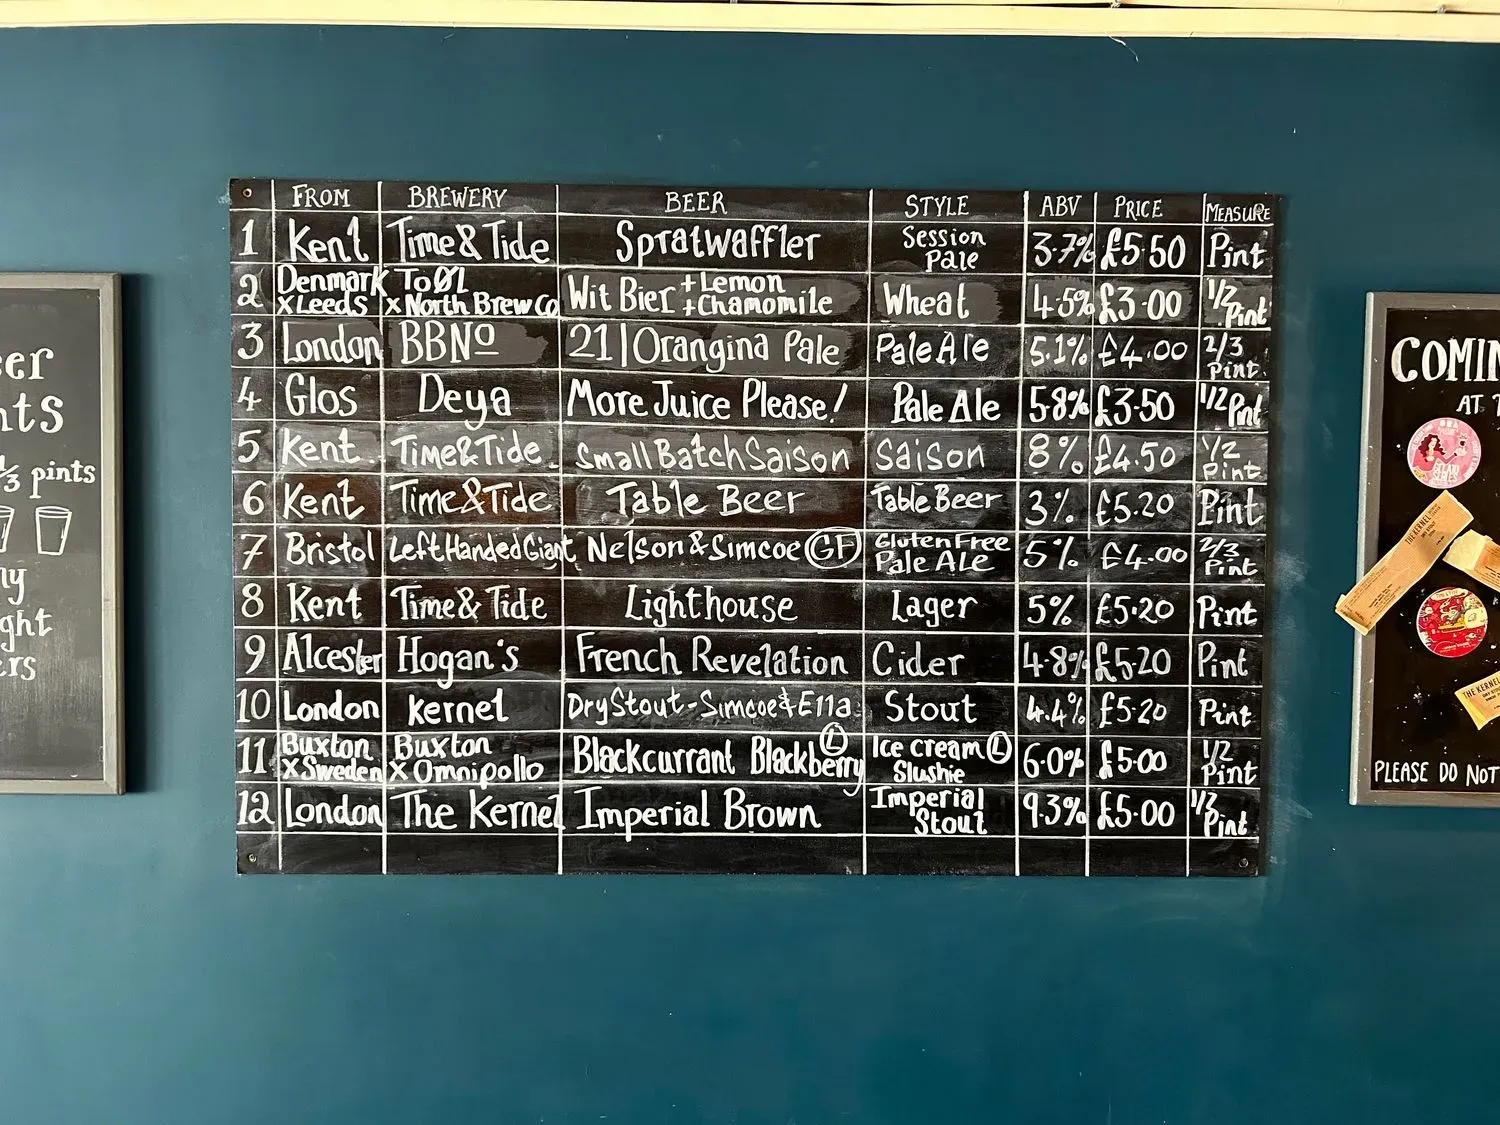 FROM BREWERY BEER STYLE ABV PRICE MEASURE
1 Kent Time & Tide Spratwaffler Session Pale 3.7% £5.50 Pint
2 Denmark x Leeds To Øl x North Brew Co Wit Bier + Lemon + Chamomile Wheat 4.5% £3.00 1/2 Pint
3 London BBNo 21|Orangina Pale Pale Ale 5.1% £4.00 2/3 Pint.
4 Glos Deya More Juice Please! Pale Ale 5.8% £3.50 1/2 Pint
5 Kent Time & Tide Small Batch Saison Saison 8% £4.50 1/2 Pint
6 Kent Time & Tide Table Beer Table Beer 3% £5.20 Pint
7 Bristol Left Handed Giant Nelson & Simcoe GF Gluten Free Pale Ale 5% £4.00 2/3 Pint
8 Kent Time & Tide Lighthouse Lager 5% £5.20 Pint
9 Alcester Hogan's French Revelation Cider 4.8% £5.20 Pint
10 London Kernel Dry Stout - Simcoe & Ella Stout 4.4% £5.20 Pint
11 Buxton X Sweden Buxton X Omnipollo Blackcurrant Blackberry L Ice cream L Slushie 6.0% £5.00 1/2 Pint
12 London The Kernel Imperial Brown Imperial Stout 9.3% £5.00 Pint
eer
nts
⅓ pints
ny
ght
ers
COMIN
AT T
THE KERNEL
THE KERNEL
PLEASE DO NOT